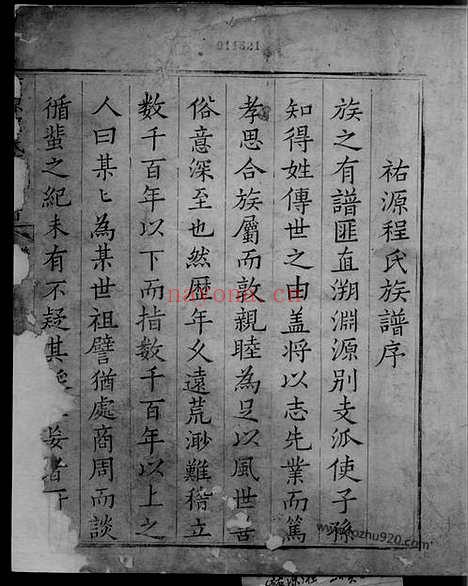 011321
祐源程氏族譜序
族之有譜匪直溯淵源別支派使子孫
知得姓傳世之由盖將以志先業而篤
孝思合族屬而敦親睦為足以風世善
俗意深至也然歷年久遠荒渺難稽立
数千百年以下而指数千百年以上之
人曰某匕為某世祖譬猶處商周而談
循蜚之紀未有不疑其
nayona.cn
www.kongfz920.com